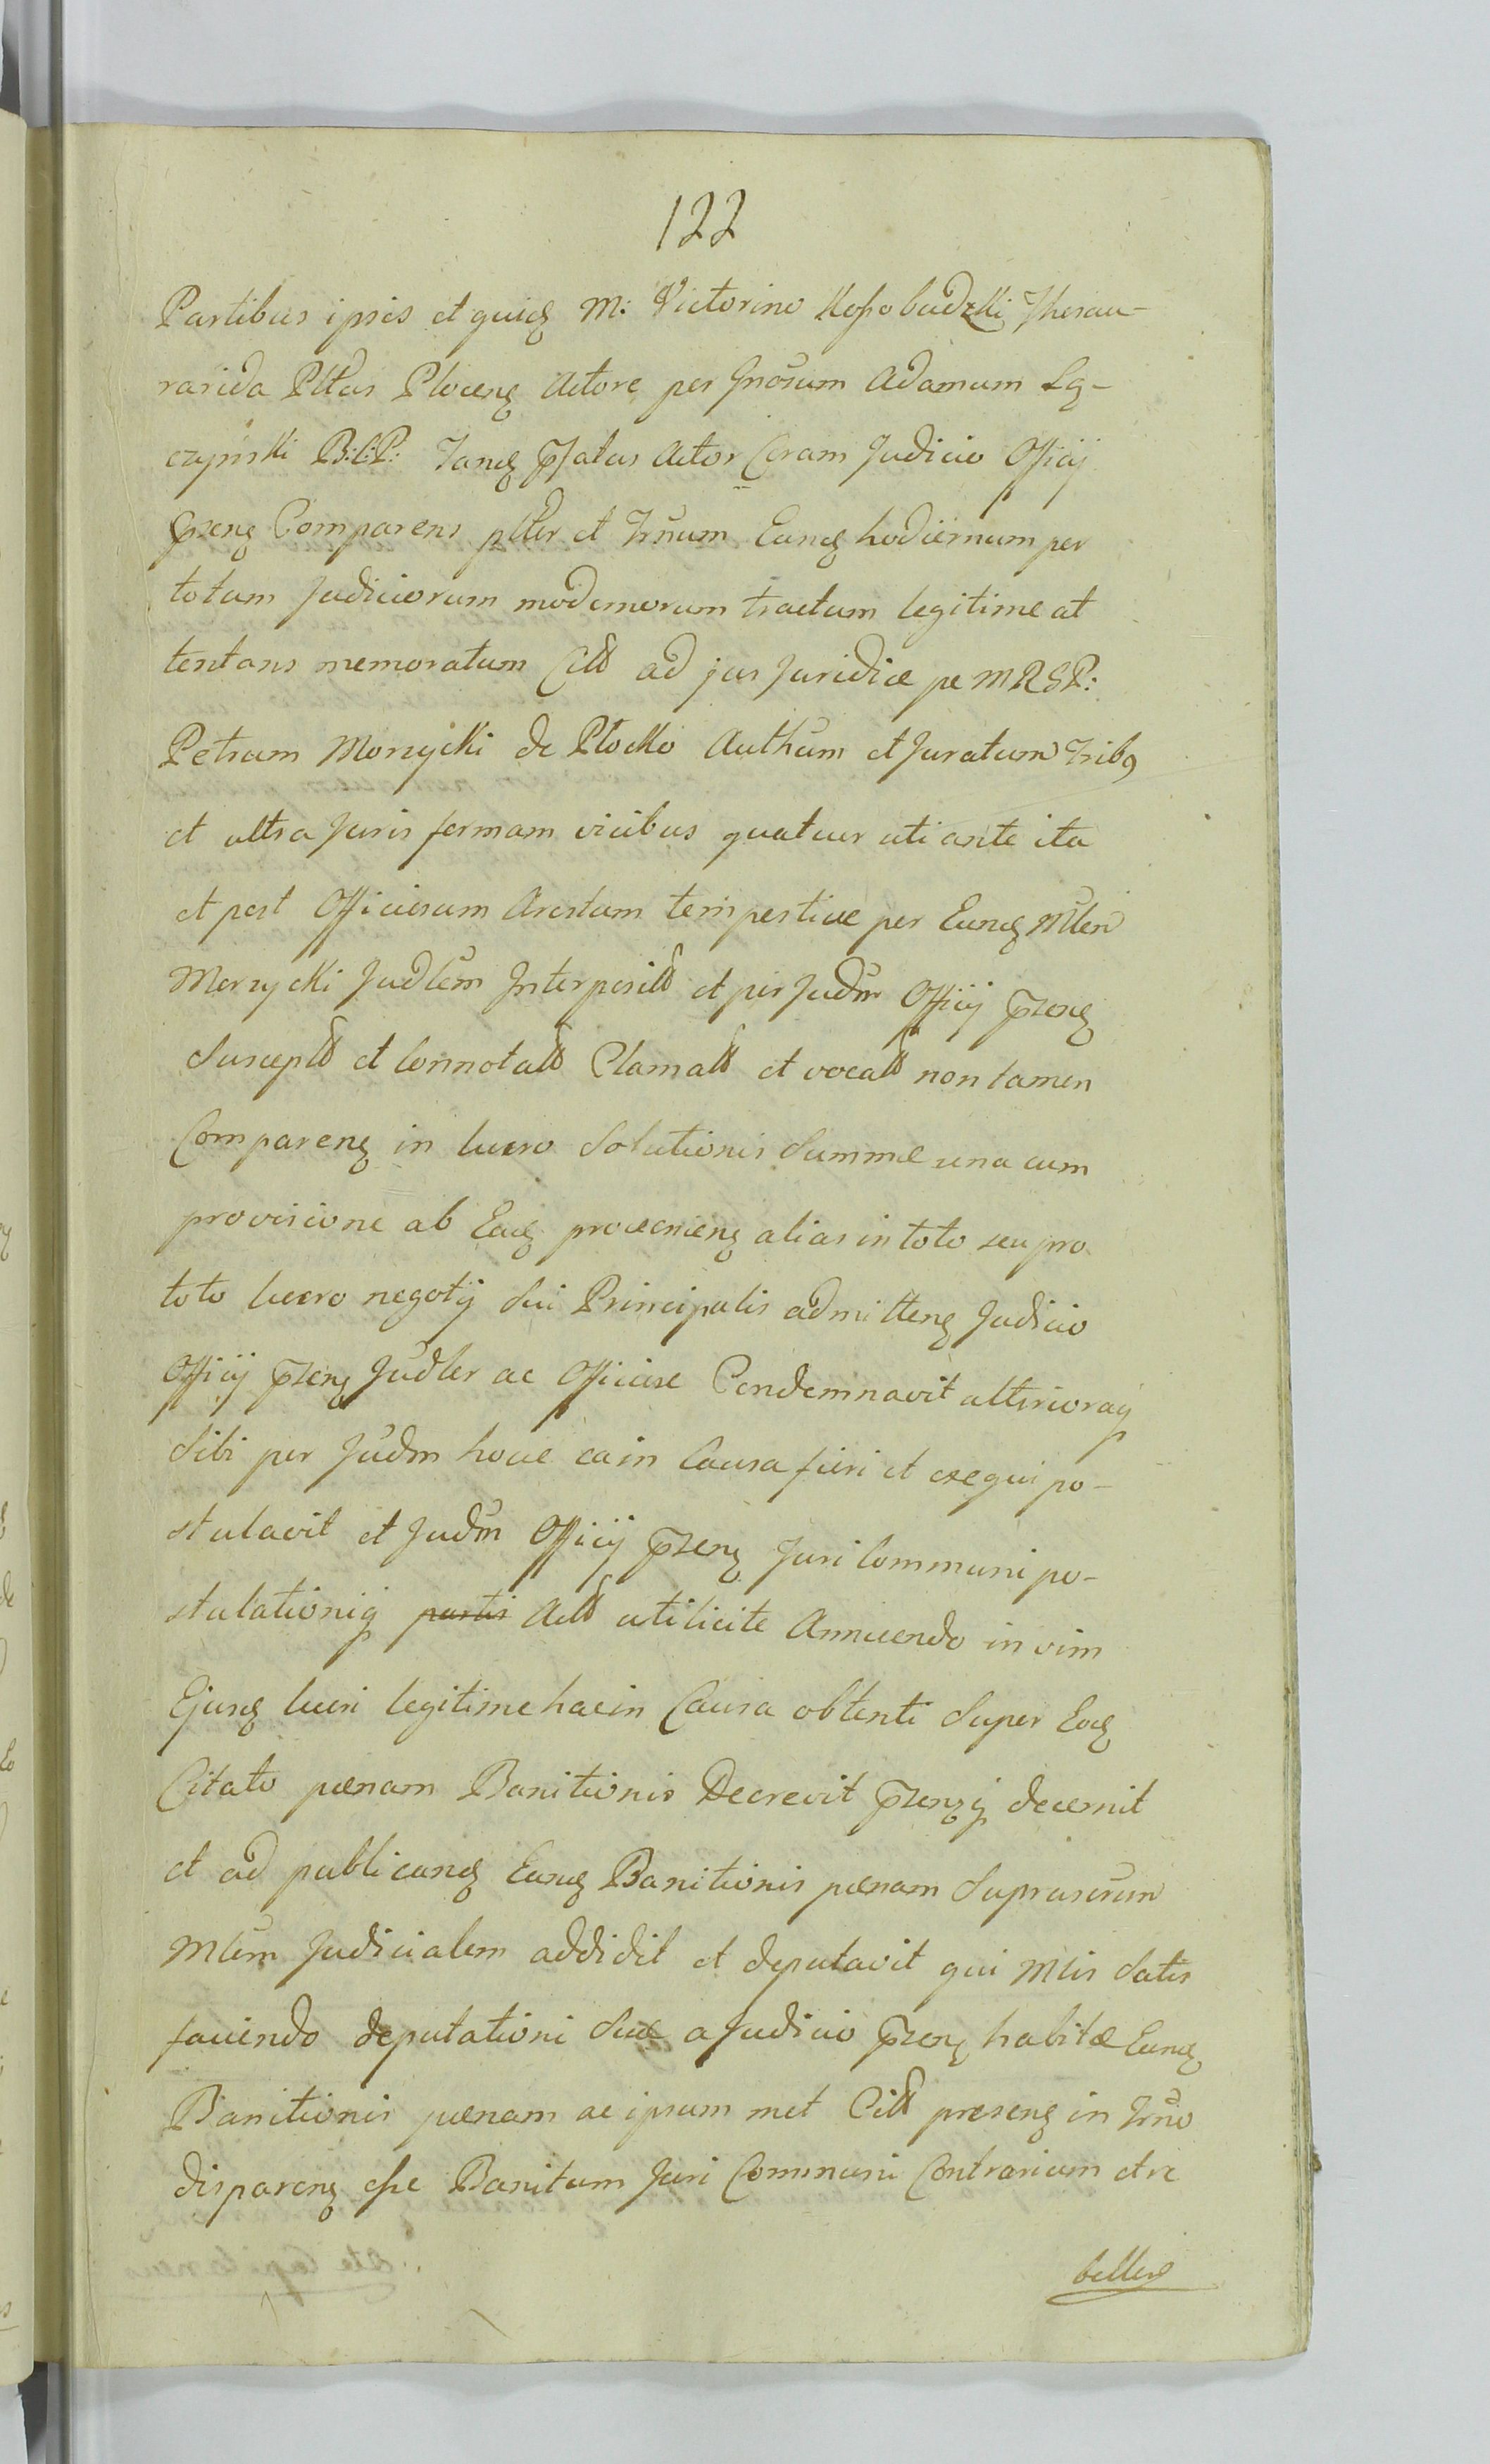 122
Partibus ipsis et quidẽ M: Victorino Kossobudzki Thesau-
rarida Pltus Plocenꝫ Actore per Gnosum Adamum Łą-
czyński B:C:P: Idemꝫ pfatus Actor Coram Judicio Officij
pzenꝫ Comparens plter et Trnum Eundꝫ hodiernum per
totum Judiciorum modernorum tractum legitime at
tentans memoratum Citt ad jus Juridice pe M R S P:
Petrum Morzycki de Płocko Authum et Juratum Tribꝰ
et ultra Juris formam vicibus quatuor uti ante ita
et post Officiosum Arestum tempestive per Eundꝫ Mlem
Morzycki Judlem Interposítt et per Judm Officij pzenꝫ
Susceptt et Connotatt Clamatt et vocatt non tamen
Comparenꝫ in lucro Solutionis Summæ una cum
provisione ab Eadꝫ provenienꝫ alias in toto seu pro
toto lucro negotij Sui Principalis admittenꝫ Judicio
Officij pzenꝫ Judler ac Officiose Condemnavit ulterioraqꝫ
Sibi per Judm hocce ea in Causa fieri et exequi po-
stulavit et Judm Officij pzenꝫ Juri Communi po-
stulationiqꝫ partis Actt uti licite Annuendo in vim
Ejusdꝫ lucri legitime hac in Causa obtenti Super Eodꝫ
Citato pœnam Banitionis Decrevit pzenzqꝫ decernit
et ad publicandꝫ Eandꝫ Banitionis pœnam Suprascrum
Mlem Judicialem addidit et deputavit qui Mlis Satis
faciendo deputationi Suæ a Judicio pzenꝫ habitæ Eandꝫ
Banitionis pœnam ac ipsum met Citt præsenꝫ in Trno
disparenꝫ esse Banitum Juri Communi Contrarium et re
bellem